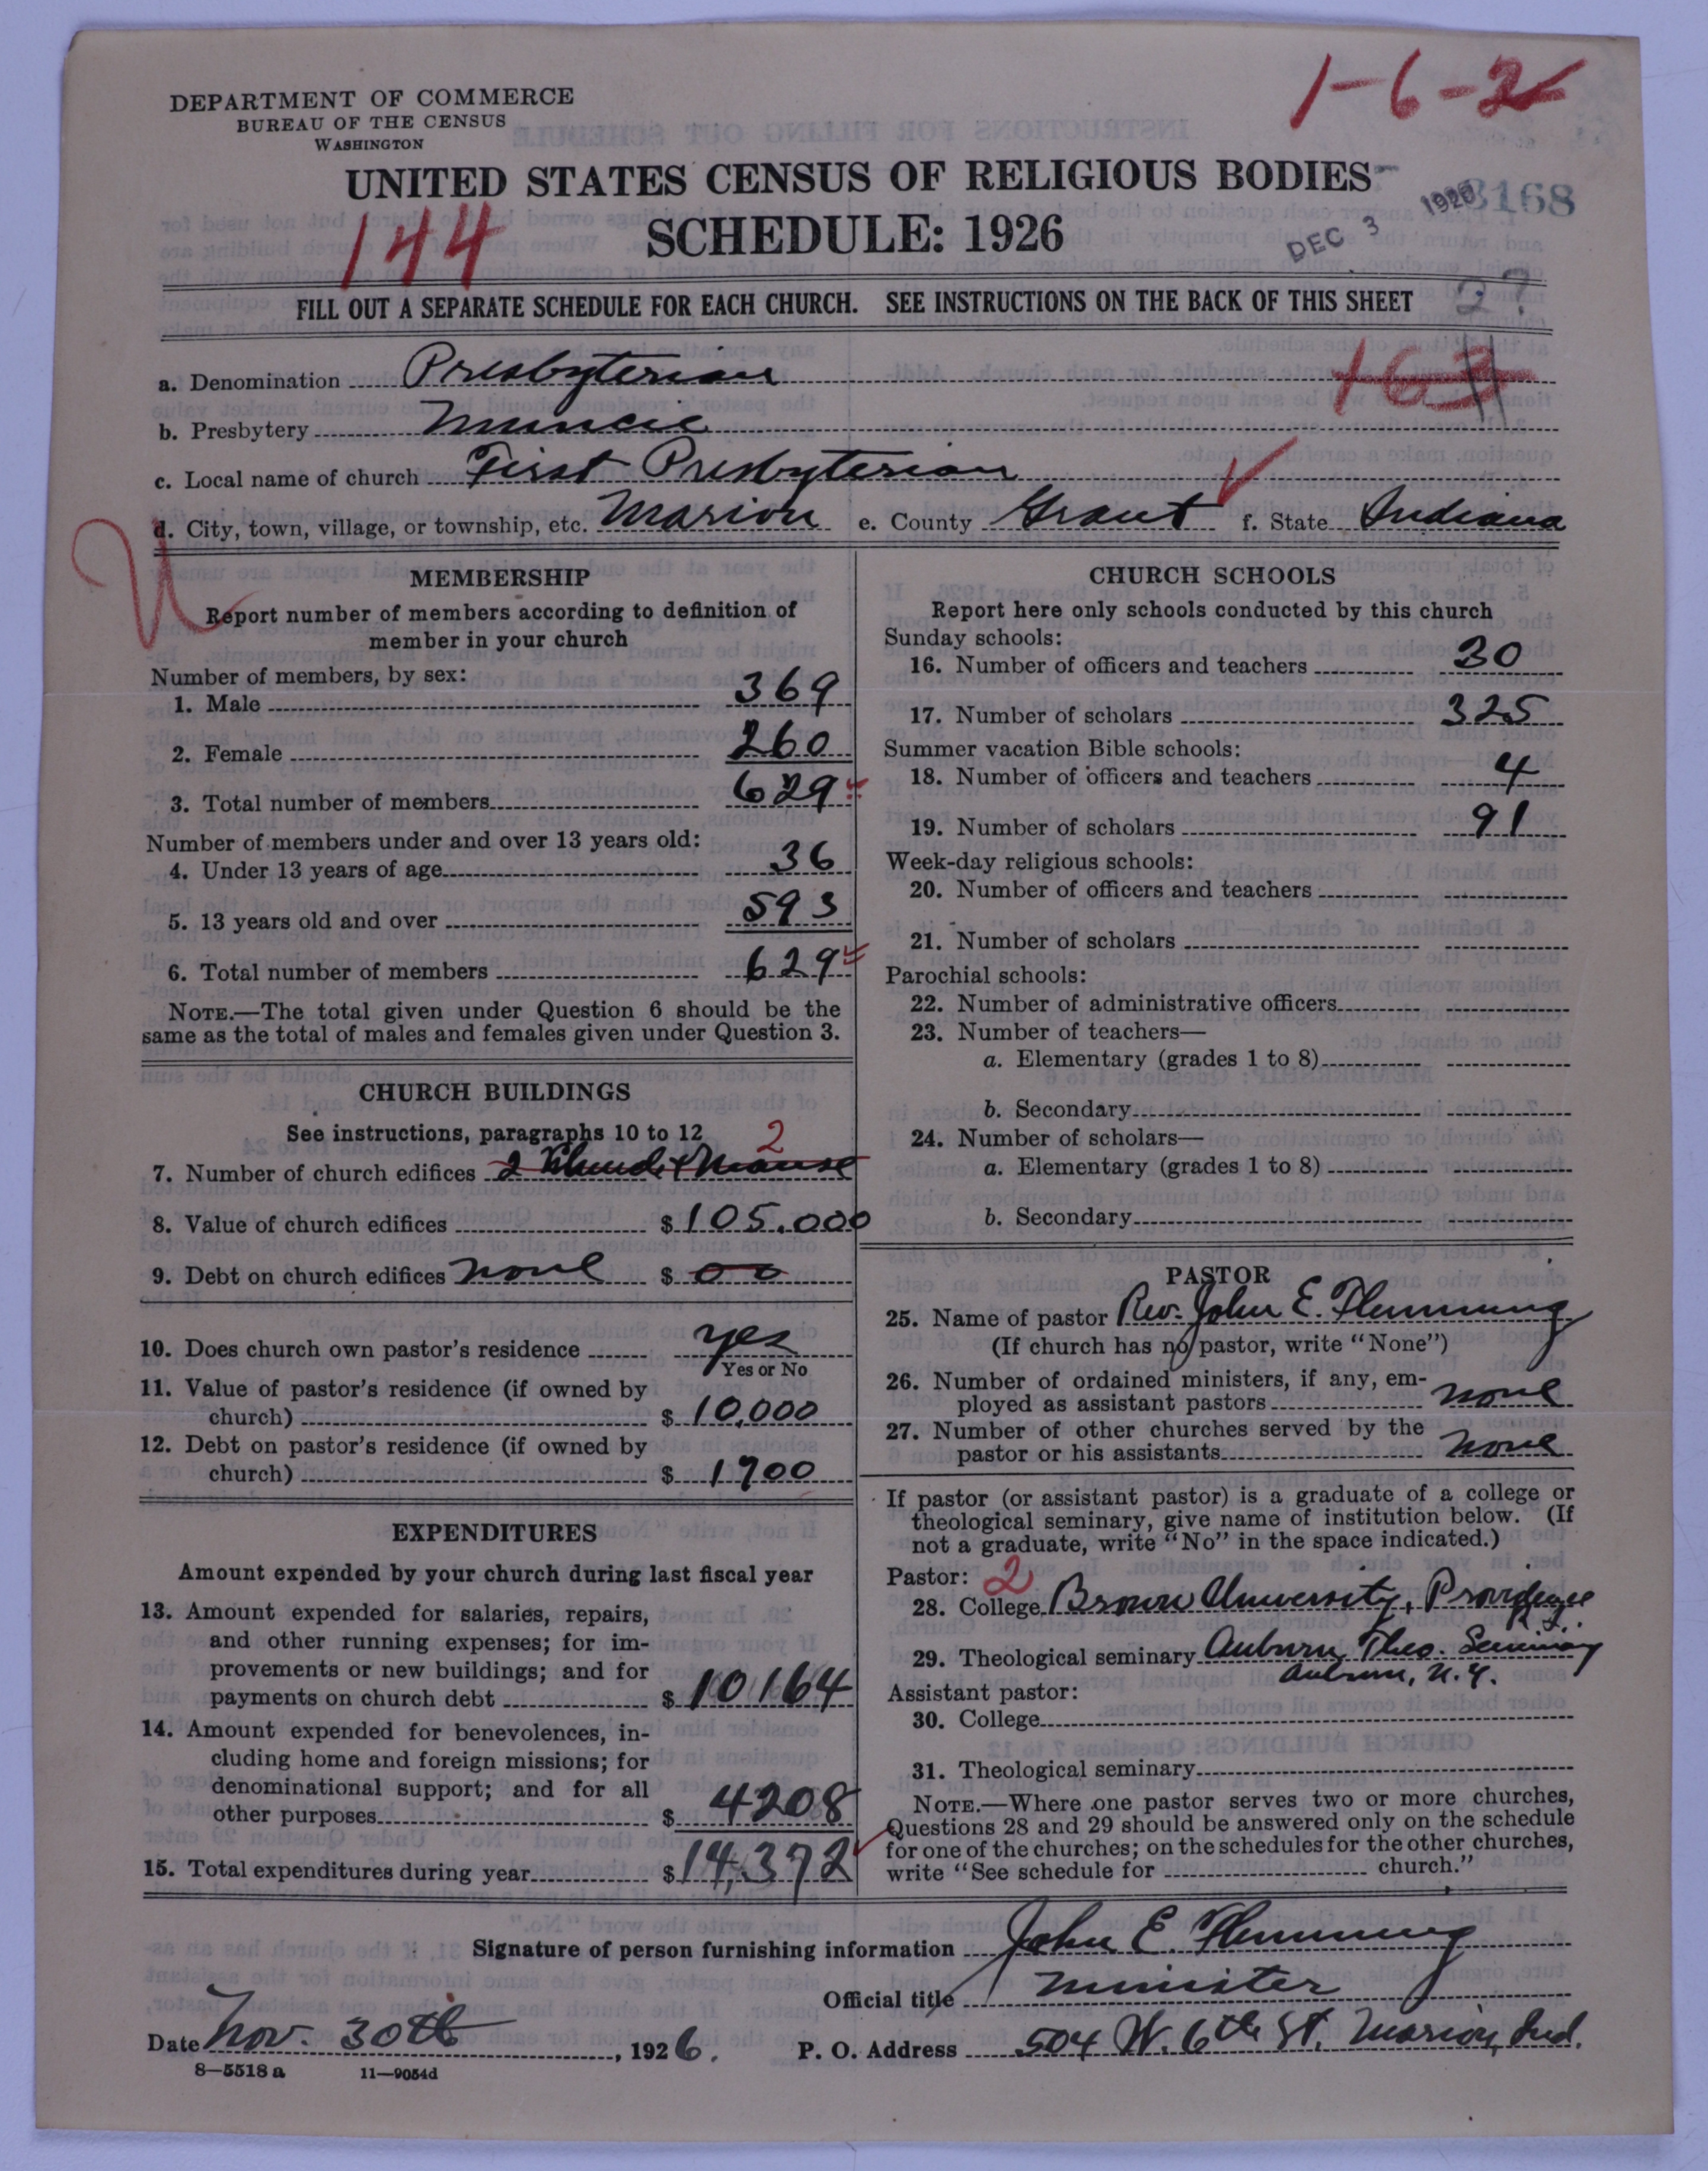 1-6-2
DEPARTMENT OF COMMERCE
BUREAU OF THE CENSUS
WASHINGTON
UNITED STATES CENSUS OF RELIGIOUS BODIES
SCHEDULE: 1926
144
DEC 3 1926
3168
FILL OUT A SEPARATE SCHEDULE FOR EACH CHURCH. SEE INSTRUCTIONS ON THE BACK OF THIS SHEET
a. Denomination Presbyterian
163
b. Presbytery Muncie
c. Local name of church First Presbyterian
d. City, town, village, or township, etc. Marion e. County Grant f. State Indiana
MEMBERSHIP
Report number of members according to definition of
member in your church
Number of members, by sex:
1. Male 369
2. Female 260
3. Total number of members 629
Number of members under and over 13 years old:
4. Under 13 years of age 36
5. 13 years old and over 593
6. Total number of members 629
NOTE.—The total given under Question 6 should be the
same as the total of males and females given under Question 3.
CHURCH BUILDINGS
See instructions, paragraphs 10 to 12
2
7. Number of church edifices 2 Church & Manse
8. Value of church edifices $ 105.000
9. Debt on church edifices none $ 00
10. Does church own pastor's residence yes
Yes or No
11. Value of pastor's residence (if owned by
church) $ 10,000
12. Debt on pastor's residence (if owned by
church) $ 1700
EXPENDITURES
Amount expended by your church during last fiscal year
13. Amount expended for salaries, repairs,
and other running expenses; for im-
provements or new buildings; and for
payments on church debt $ 10164
14. Amount expended for benevolences, in-
cluding home and foreign missions; for
denominational support; and for all
other purposes $ 4208
15. Total expenditures during year $ 14,372
CHURCH SCHOOLS
Report here only schools conducted by this church
Sunday schools:
16. Number of officers and teachers 30
17. Number of scholars 325
Summer vacation Bible schools:
18. Number of officers and teachers 4
19. Number of scholars 91
Week-day religious schools:
20. Number of officers and teachers
21. Number of scholars
Parochial schools:
22. Number of administrative officers
23. Number of teachers—
a. Elementary (grades 1 to 8)
b. Secondary
24. Number of scholars—
a. Elementary (grades 1 to 8)
b. Secondary
PASTOR
25. Name of pastor Rev. John E. Flemming
(If church has no pastor, write "None")
26. Number of ordained ministers, if any, em-
ployed as assistant pastors none
27. Number of other churches served by the
pastor or his assistants none
If pastor (or assistant pastor) is a graduate of a college or
theological seminary, give name of institution below. (If
not a graduate, write "No" in the space indicated.)
Pastor: 2
28. College Brown University, Providence
R.I.
29. Theological seminary Auburn Theo. Seminary
Auburn, N.Y.
Assistant pastor:
30. College
31. Theological seminary
NOTE.—Where one pastor serves two or more churches,
Questions 28 and 29 should be answered only on the schedule
for one of the churches; on the schedules for the other churches,
write "See schedule for church."
Signature of person furnishing information John E. Flemming
Official title Minister
Date Nov. 30th, 1926. P. O. Address 504 W. 6th St. Marion, Ind.
8—5518 a 11—9054d